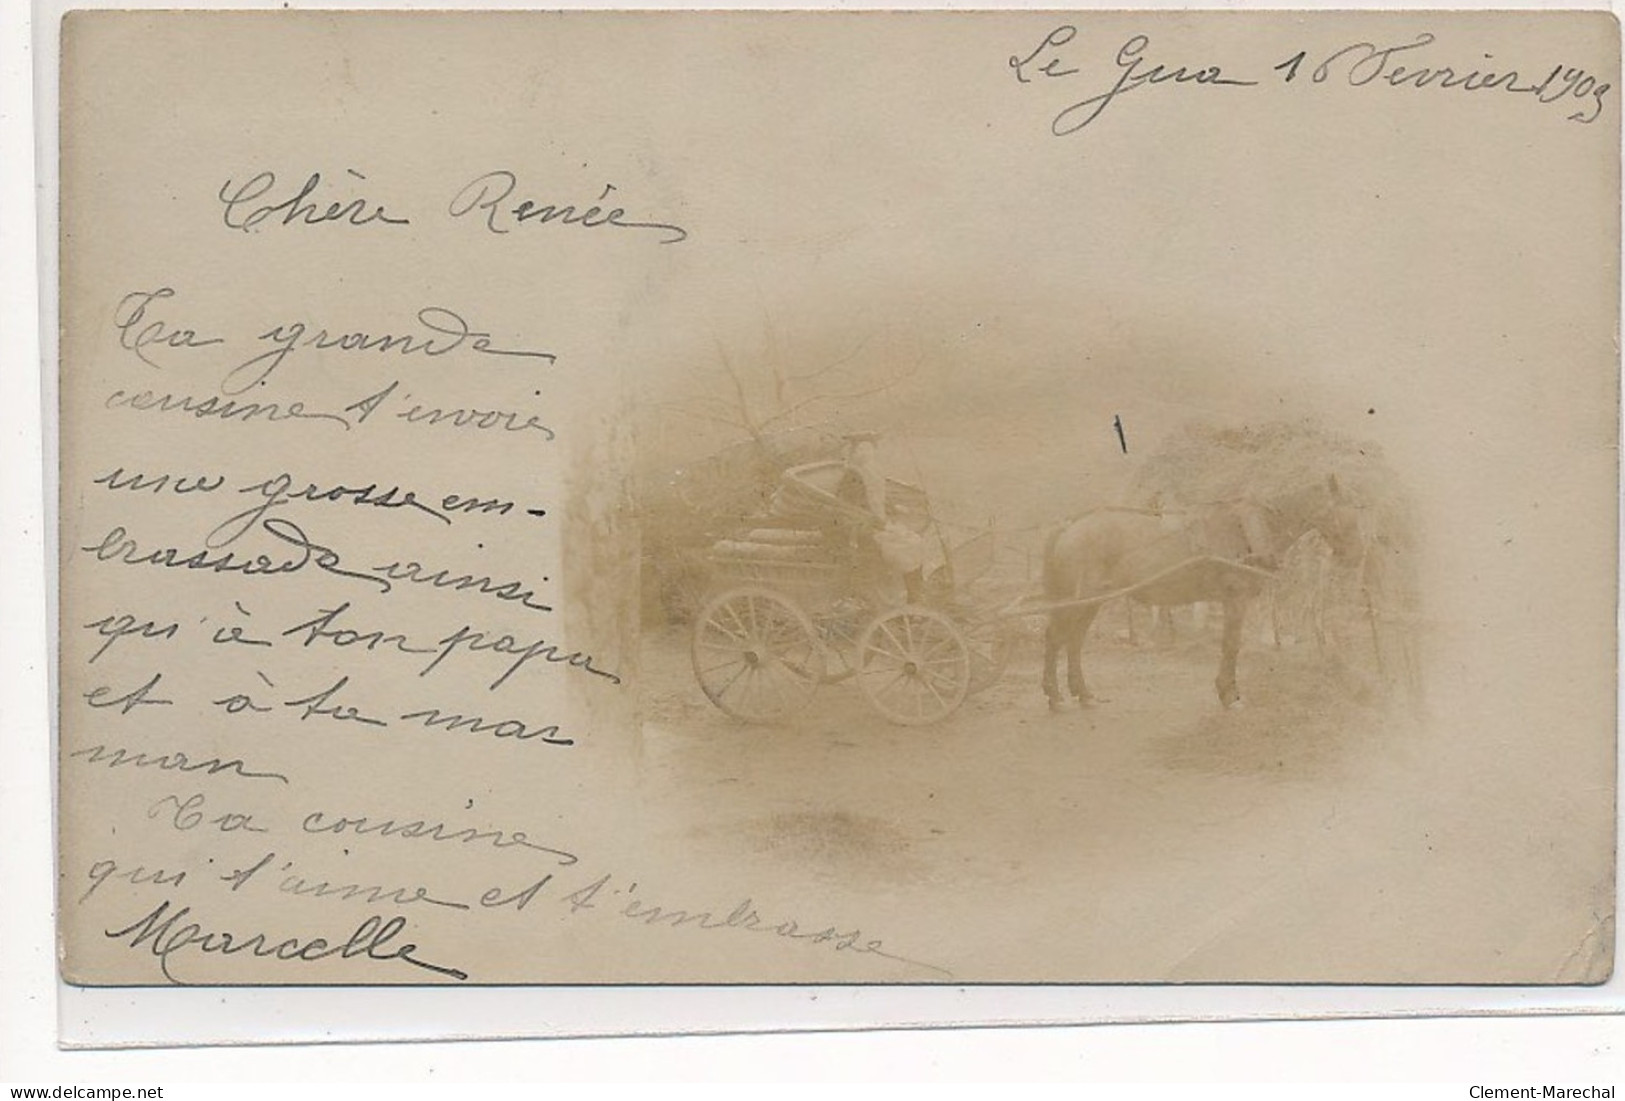 Le Gua 16 Fevrier 1903
Chère Renée
Ta grande
cousine t'envoie
une grosse em-
brassade ainsi
qu'à ton papa
et à ta ma-
man
Ta cousine
qui t'aime et t'embrasse
Marcelle
delcampe.net
Clement-Marechal